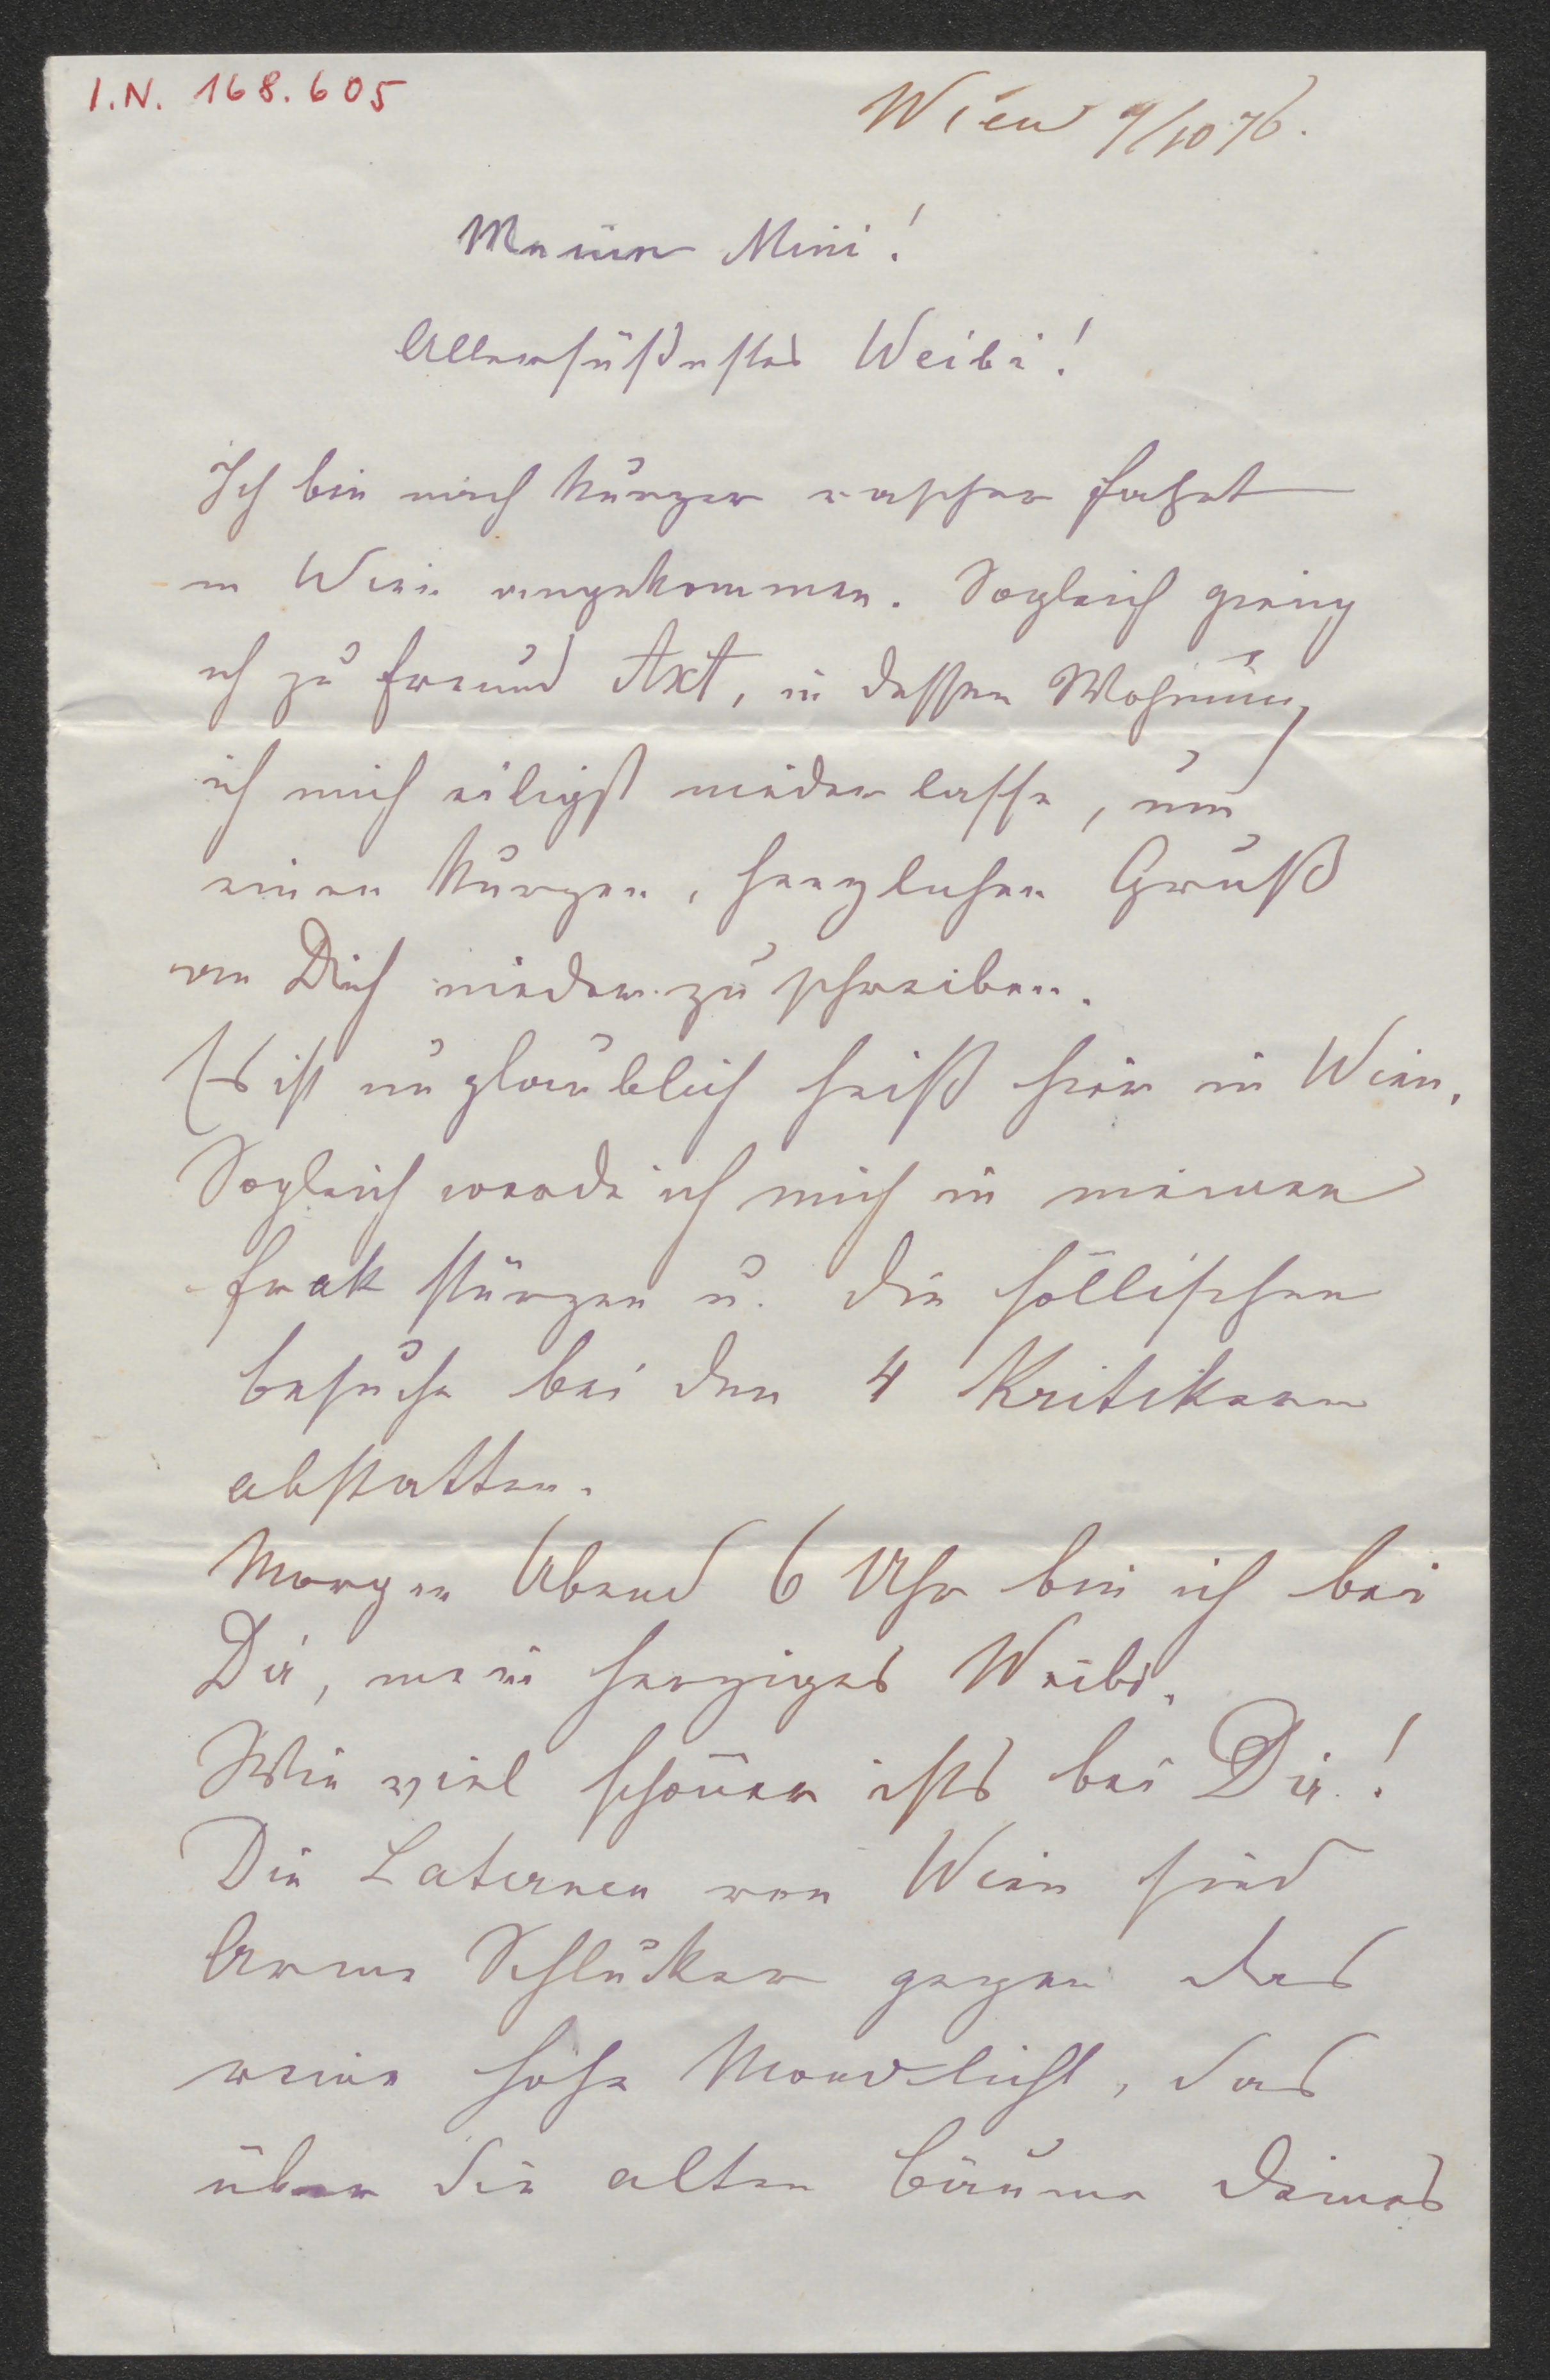 I.N. 168.605
Wien 9/10 76.
Meine Mini!
Allersüßestes Weibi!
Ich bin nach kurzer rascher Fahrt
in Wien angekommen. Sogleich gieng
ich zu Freund Axt, in dessen Wohnung
ich mich eiligst niederlasse, um
einen kurzen, herzlichen Gruß
an Dich niederzuschreiben.
Es ist unglaublich heiß hier in Wien.
Sogleich werde ich mich in meinen
Frak stürzen u. die höllischen
Besuche bei den 4 Kritikern
abstatten.
Morgen Abend 6 Uhr bin ich bei
Dir, mein herziges Weibi.
Wie viel schöner ists bei Dir!
Die Laternen von Wien sind
Arme Schluker gegen das
reine hohe Mondlicht, das
über die alten Bäume Deines